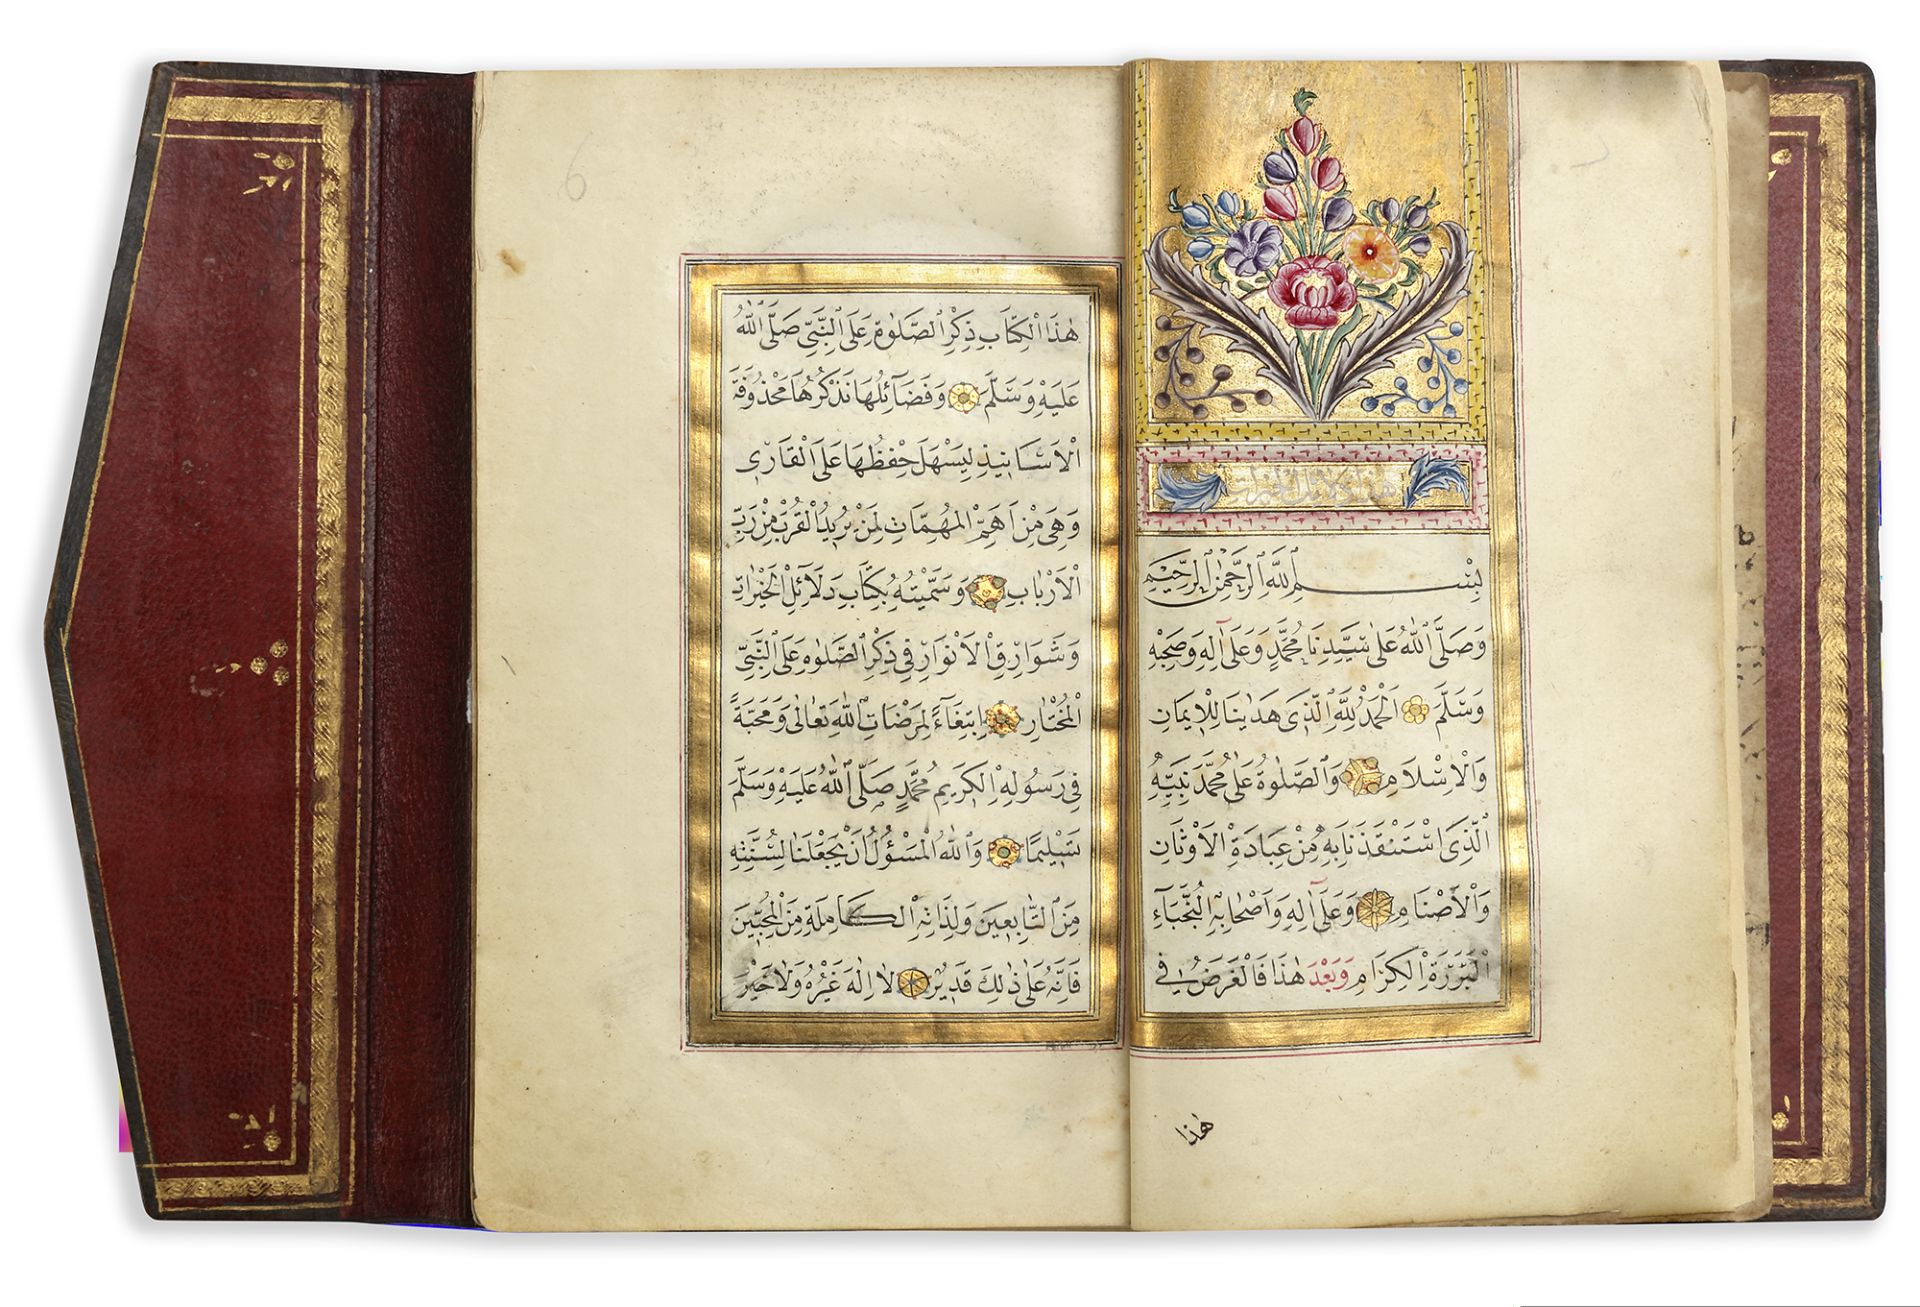 هذا دلائل الخيرات
بِسْمِ ٱللَّهِ ٱلرَّحْمٰنِ ٱلرَّحِيمِ
وَصَلَّى ٱللّٰهُ عَلٰى سَيِّدِنَا مُحَمَّدٍ وَعَلٰى اٰلِهِ وَصَحْبِهِ
وَسَلَّمَ اَلْحَمْدُ لِلّٰهِ الَّذِى هَدٰينَا لِلْاِيمَانِ
وَالْاِسْلَامِ وَالصَّلٰوةُ عَلٰى مُحَمَّدٍ نَبِيِّهِ
الَّذِى اسْتَنْقَذَنَا بِهِ مِنْ عِبَادَةِ الْاَوْثَانِ
وَالْاَصْنَامِ وَعَلٰى اٰلِهِ وَاَصْحَابِهِ النُّجَبَآءِ
الْبَرَرَةِ الْكِرَامِ وَبَعْدَ هٰذَا فَالْغَرَضُ فِى
هٰذا
6
هٰذَا الْكِتَابِ ذِكْرُ الصَّلٰوةِ عَلَى النَّبِيِّ صَلَّى اللّٰهُ
عَلَيْهِ وَسَلَّمَ وَفَضَآئِلُهَا نَذْكُرُهَا مَحْذُوفَةَ
الْاَسَانِيذِ لِيَسْهَلَ حِفْظُهَا عَلَى الْقَارِى
وَهِىَ مِنْ اَهَمِّ الْمُهِمَّاتِ لِمَنْ يُرِيدُ الْقُرْبَ مِنْ رَبِّ
الْاَرْبَابِ وَسَمَّيْتُهُ بِكِتَابِ دَلَآئِلِ الْخَيْرَاتِ
وَشَوَارِقِ الْاَنْوَارِ فِى ذِكْرِ الصَّلٰوةِ عَلَى النَّبِيِّ
الْمُخْتَارِ اِبْتِغَآءً لِمَرْضَاتِ اللّٰهِ تَعَالٰى وَمَحَبَّةً
فِى رَسُولِهِ الْكَرِيمِ مُحَمَّدٍ صَلَّى اللّٰهُ عَلَيْهِ وَسَلَّمَ
تَسْلِيمًا وَاللّٰهُ الْمَسْؤُلُ اَنْ يَجْعَلَنَا لِسُنَّتِهِ
مِنَ التَّابِعِينَ وَلِذَاتِهِ الْكَامِلَةِ مِنَ الْمُحِبِّينَ
فَاِنَّهُ عَلٰى ذٰلِكَ قَدِيرٌ لَا اِلٰهَ غَيْرُهُ وَلَا خَيْرَ